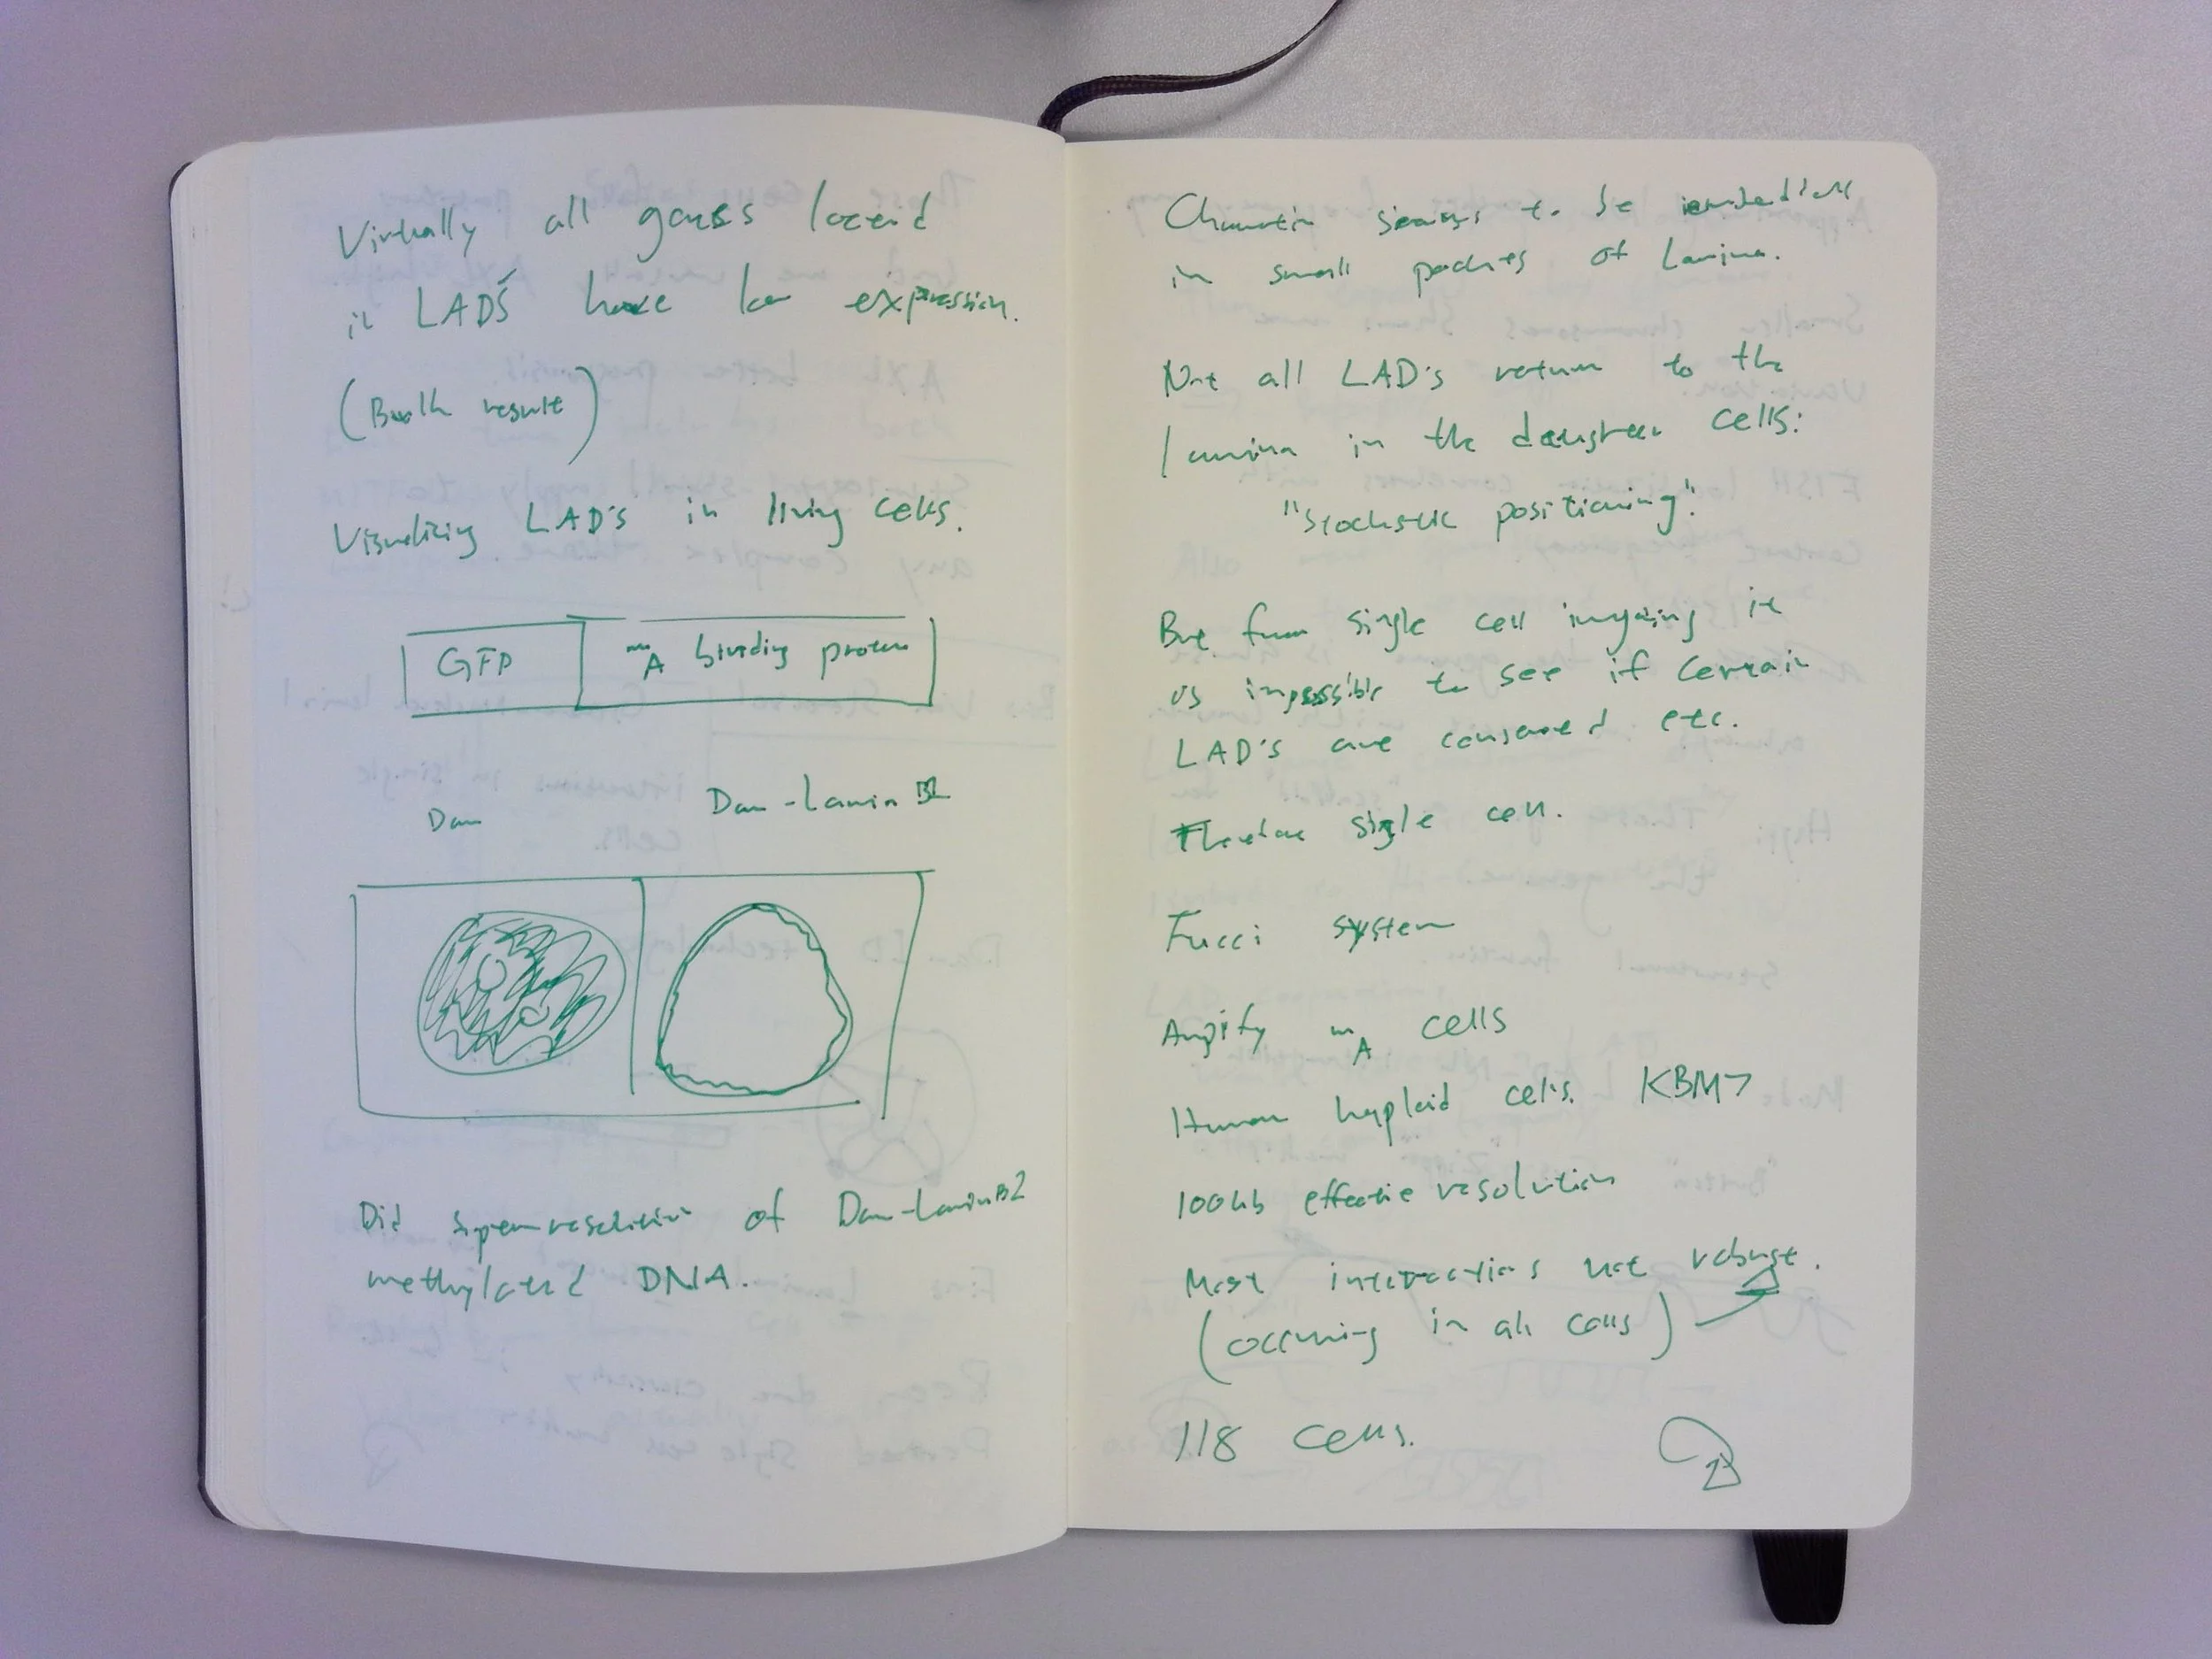 Virtually all genes located
in LADS have low expression.
(Bulk result)
Visualizing LAD's in living cells.
GFP
mA binding protein
Dam
Dam-Lamin B1
Did superresolution of Dam-Lamin
methylated DNA.
Chromatin seems to be
in small patches of Lamina.
Not all LAD's return to the
lamina in the daughter cells:
"stochastic positioning".
But from single cell imaging it
is impossible to see if certain
LAD's are conserved etc.
Therefore single cell.
Fucci system
Amplify mA cells
Human haploid cells. KBM7
100kb effective resolution
Most interactions not robust.
(occuring in all cells)
118 cells.